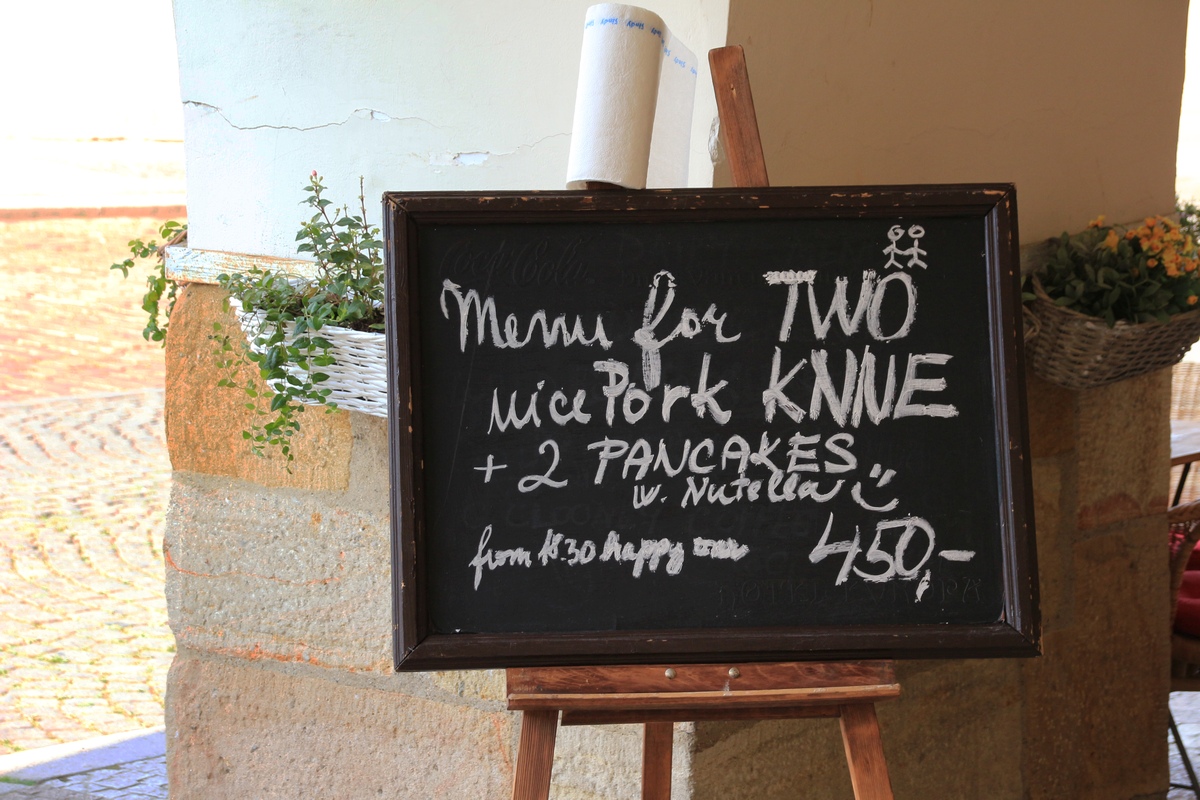 Menu for TWO
nice Pork KNNE
+ 2 PANCAKES
w. Nutella
from 18.30 happy
450,-